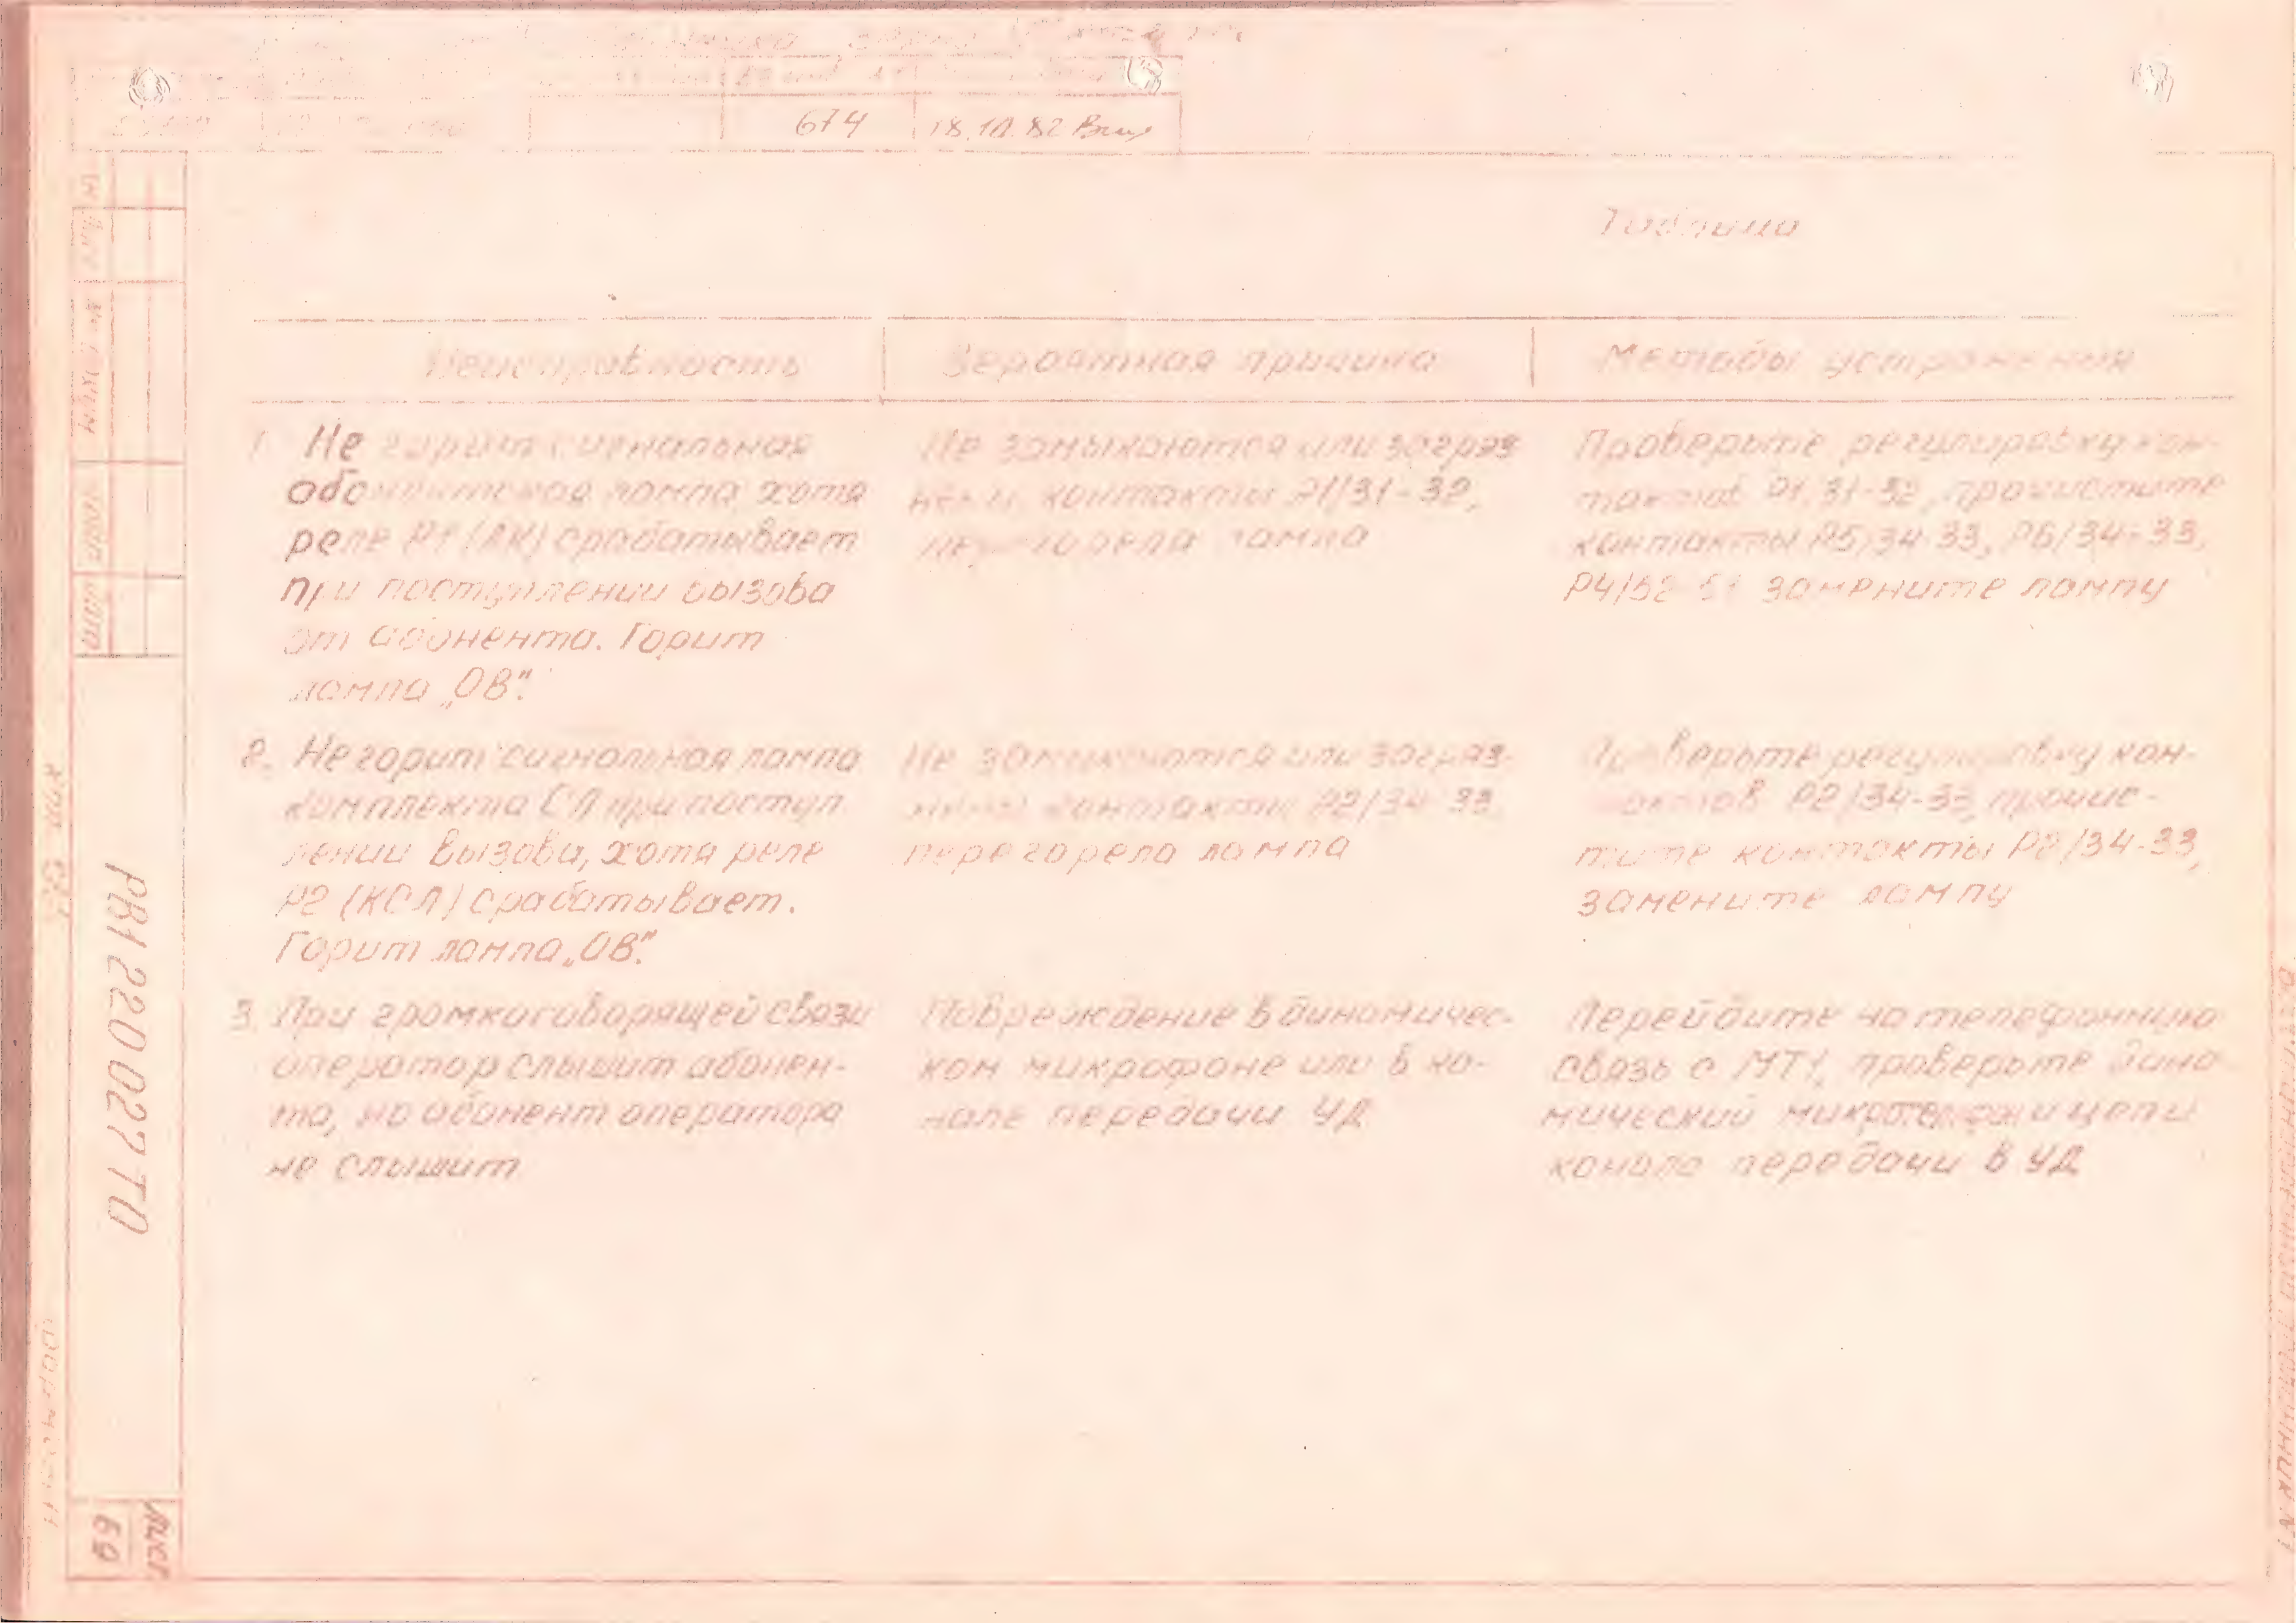 674 18.10.82
Таблица
Неисправность Вероятная причина Методы устранения
1. Не горит сигнальная
абонентская лампа, хотя
реле Р1 (АК) срабатывает
при поступлении вызова
от абонента. Горит
лампа „ОВ".
Не замыкаются или загряз-
нены контакты Р1/31-32,
перегорела лампа
Проверьте регулировку кон-
тактов Р1/31-32, прочистите
контакты Р5/34-33, Р6/34-33,
Р4/52-51 замените лампу
2. Не горит сигнальная лампа
комплекта СЛ при поступ-
лении вызова, хотя реле
Р2 (КСЛ) срабатывает.
Горит лампа „ОВ".
Не замыкаются или загряз-
нены контакты Р2/34-33,
перегорела лампа
Проверьте регулировку кон-
тактов Р2/34-33, прочис-
тите контакты Р2/34-33,
замените лампу
3. При громкоговорящей связи
оператор слышит абонен-
та, но абонент оператора
не слышит
Повреждение в динамичес-
ком микрофоне или в ка-
нале передачи УД
Перейдите на телефонную
связь с МТ1, проверьте дина-
мический и цепи
канала передачи в УД
№ докум
подп
дата
РВ1 220 027 ТО
Лист
69